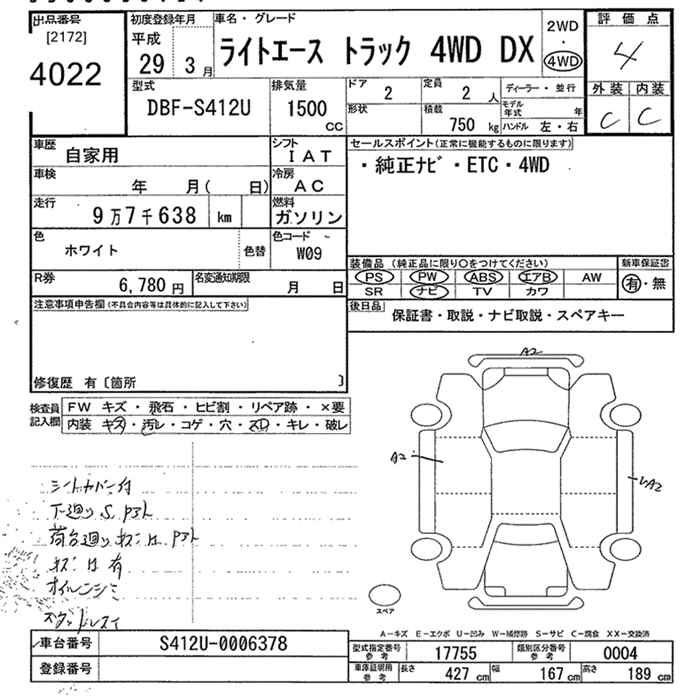 出品番号
[2172]
4022
初度登録年月
平成
29 3月
車名・グレード
ライトエース トラック 4WD DX
2WD
・
4WD
評価点
4
外装 内装
C C
型式
DBF-S412U
排気量
1500
CC
ドア
2
定員
2 人
形状
積載
750 kg
ディーラー・並行
モデル年式 年
ハンドル 左・右
車歴
自家用
シフト
IAT
車検
年 月( 日)
冷房
AC
走行
9万7千638 km
燃料
ガソリン
色
ホワイト
色替
色コード
W09
R券
6,780 円
名変通知期限
月 日
セールスポイント(正常に機能するものに限ります)
・純正ナビ・ETC・4WD
装備品 (純正品に限り○をつけてください)
PS PW ABS エアB AW
SR ナビ TV カワ
新車保証書
有・無
後日品
保証書・取説・ナビ取説・スペアキー
注意事項申告欄(不具合内容等は具体的に記入して下さい)
修復歴 有〔箇所 〕
検査員記入欄
FW キズ・飛石・ヒビ割・リペア跡・×要
内装 キズ・汚レ・コゲ・穴・スレ・キレ・破レ
シートカバー付
下廻りS
荷台廻りキズ
有
オイルニジミ
スタッドレス
A2
A2
A2
スペア
A-キズ E-エクボ U-凹み W-補修跡 S-サビ C-腐食 XX-交換済
車台番号
S412U-0006378
登録番号
型式指定番号
参考
17755
類別区分番号
参考
0004
車庫証明用
参考
長さ 427 cm 幅 167 cm 高さ 189 cm